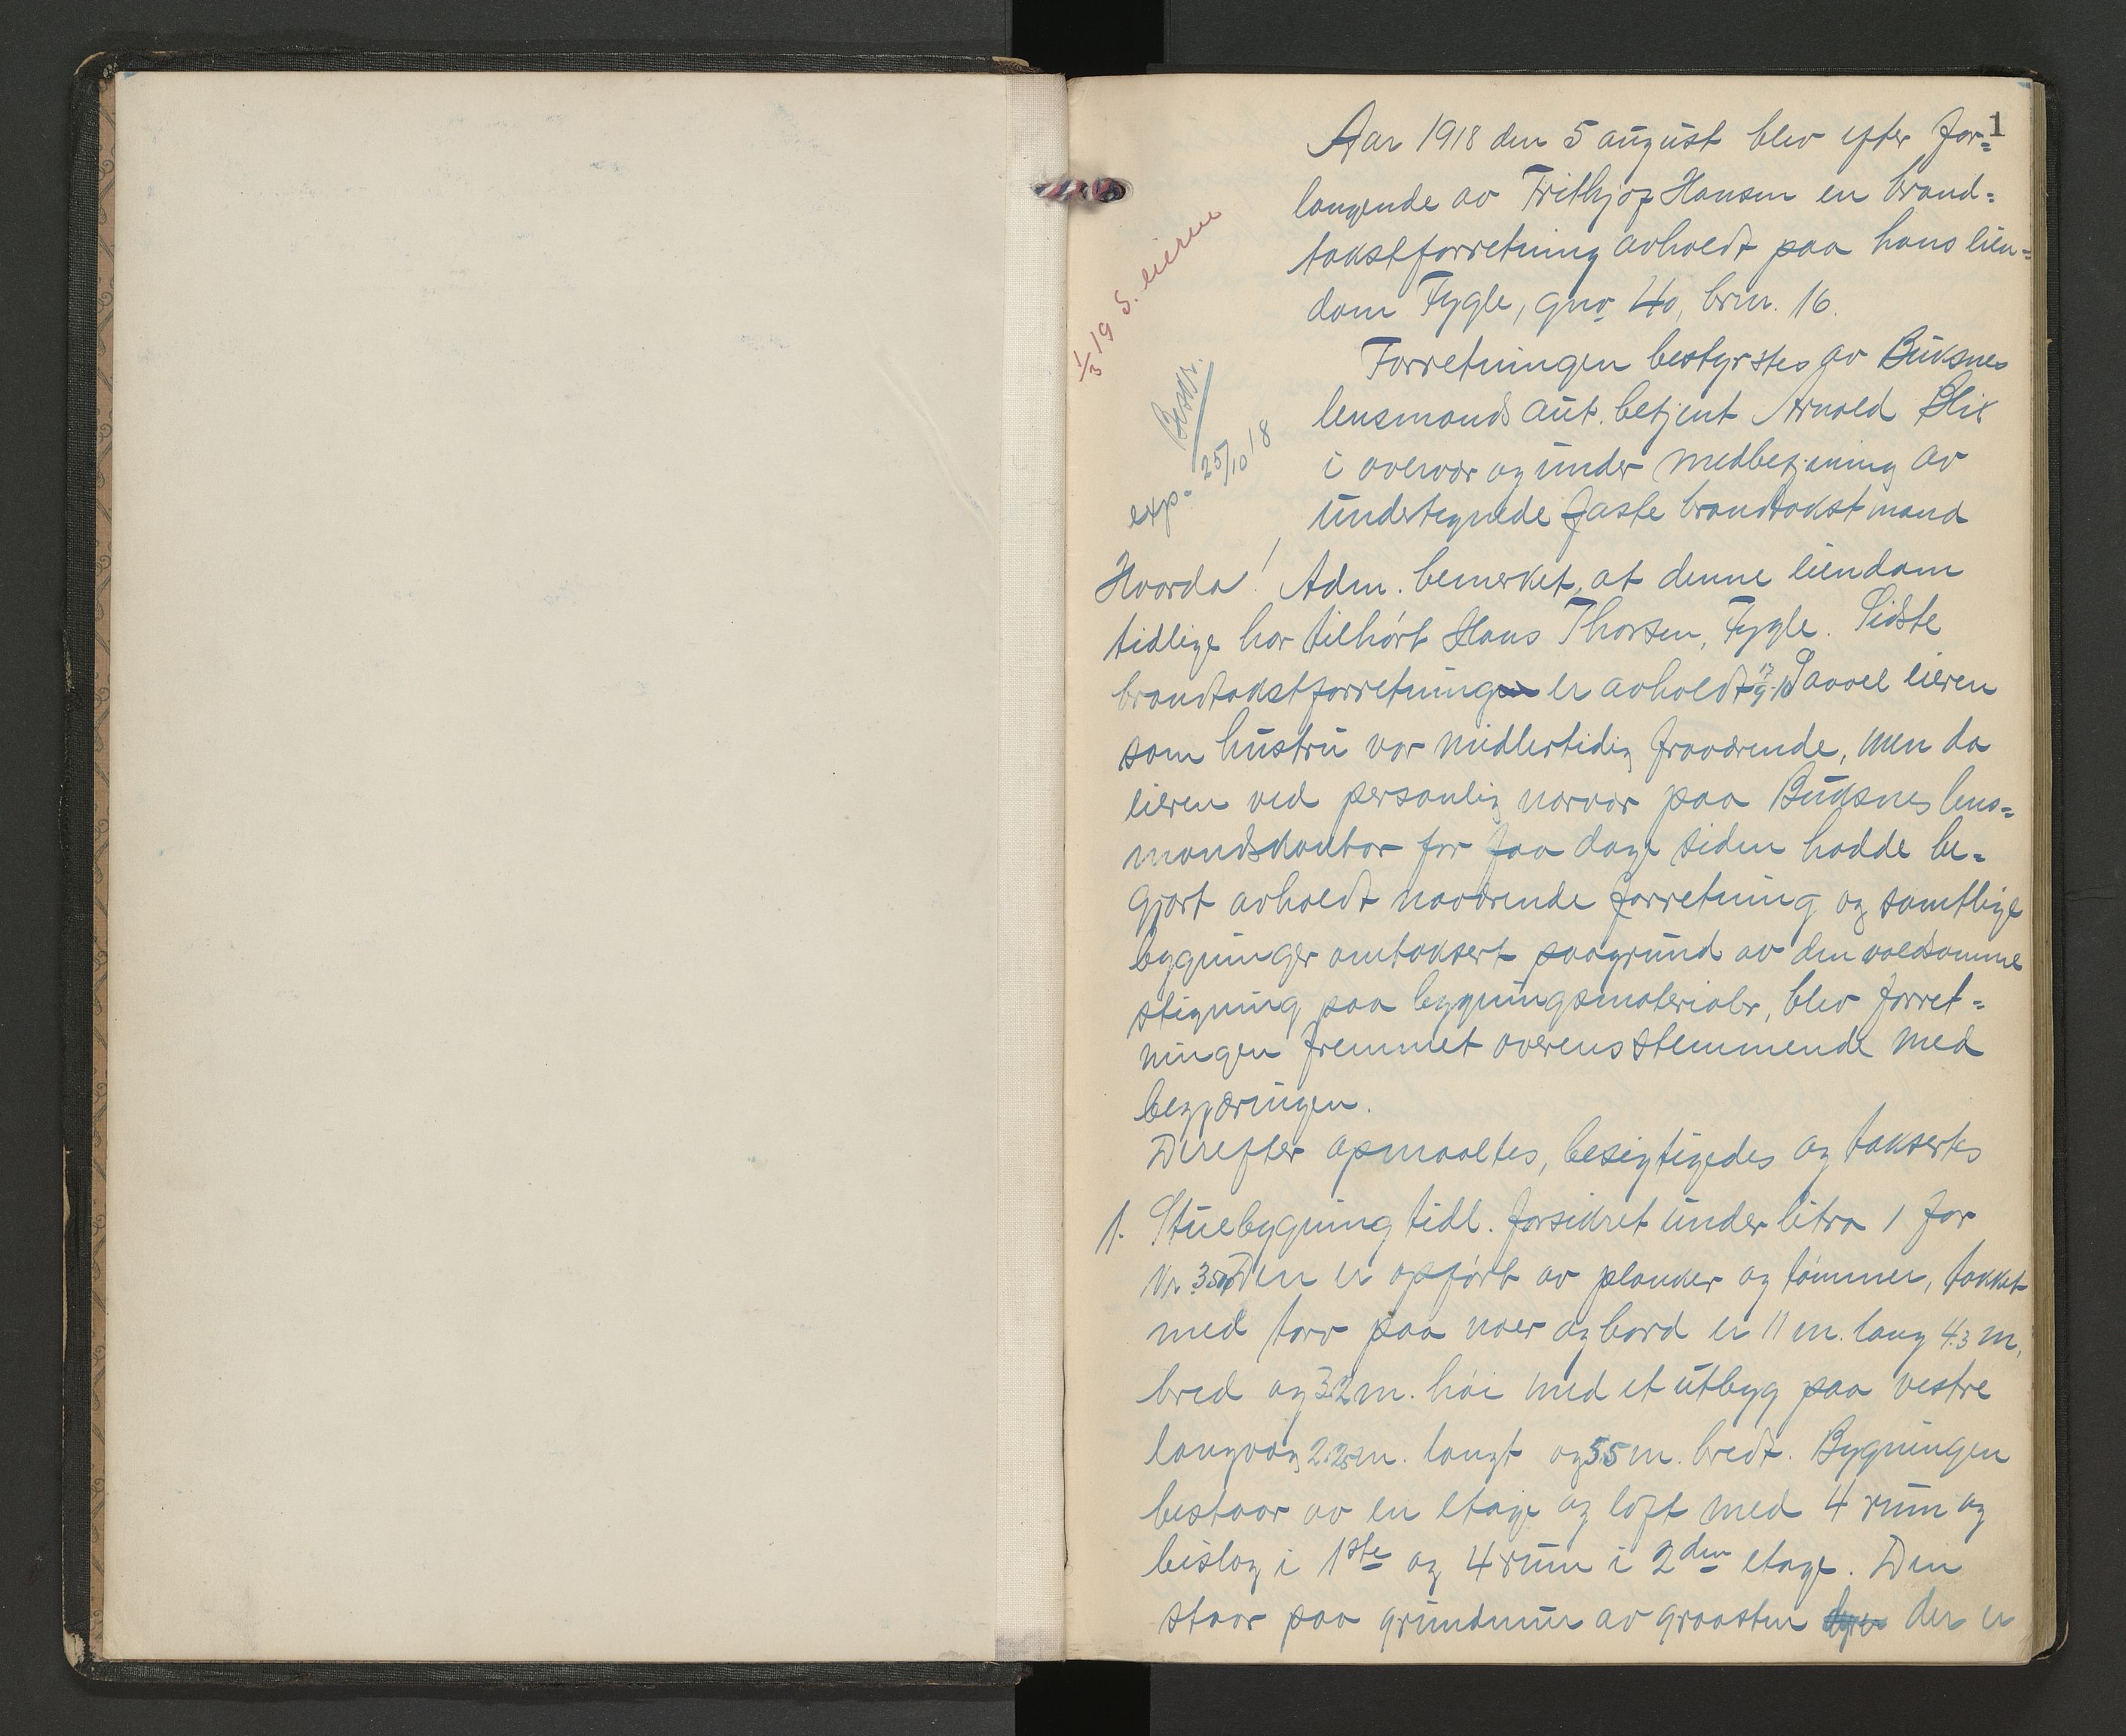 1
Aar 1918 den 5 august blev efter for=
langende av Frithjof Hansen en brand=
takstforretning avholdt paa hans eien=
dom Fygle, gno. 40, brn. 16.
Forretningen bestyrstes av Buksnes
lensmands aut. betjent Arnold Blix
i overvær og under medbetjening av
undertegnede faste brandtakstmænd
Hvorda! Adm. bemerket, at denne eiendom
tidlige har tilhørt Hans Thorsen, Fygle. Sidste
brandtakstforretning er avholdt 17/9-10 Saavel eieren
som hustru var midlertidig fraværende, men da
eieren ved personlig nærvær paa Buksnes lens=
mandskontor for faa dage siden hadde be=
gjært avholdt nærværende forretning og samtlige
bygninger omtaksert paagrund av den voldsomme
stigning paa bygningsmaterialer, blev forret=
ningen fremmet overensstemmende med
begjæringen.
Derefter opmaaltes, besigtigedes og taksertes
1. Stuebygning tidl. forsikret under litra 1 for
Kr. 3500 Den er opført av planker og tømmer, tækket
med torv paa næver og bord er 11 m. lang 4.3 m.
bred og 3.2 m. høi med et utbyg paa vestre
langvæg 2.25 m. langt og 5.5 m. bredt. Bygningen
bestaar av en etage og loft med 4 rum og
bislag i 1ste og 4 rum i 2den etage. Den
staar paa grundmur av graasten der er
1/3 19 S. eieren
Beskr.
exp. 25/10 18